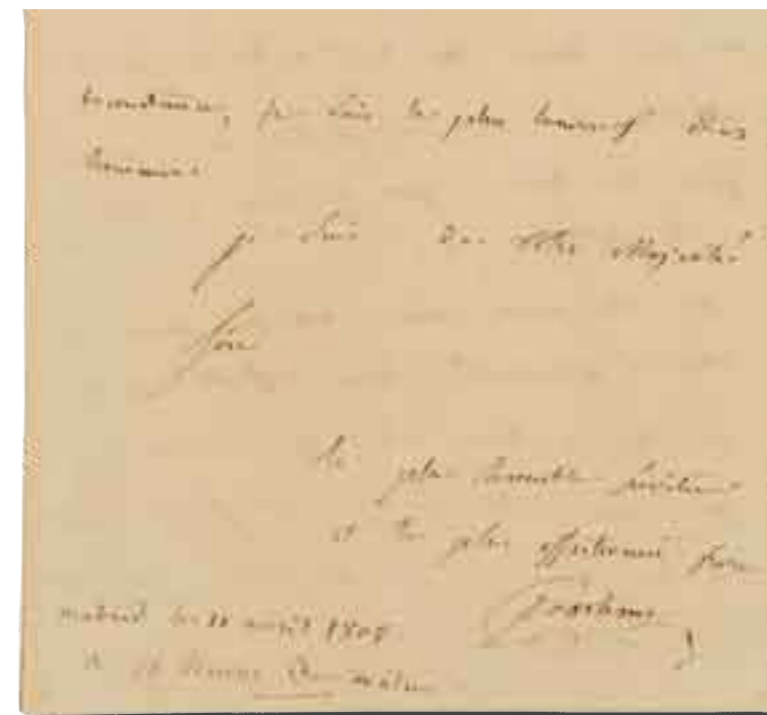 je suis le plus heureux des
hommes.
je suis De Votre Majesté
Sire
le plus humble serviteur
et le plus affectionné frere
Joachim
madrid le avril 1808
a 11 heures Du matin